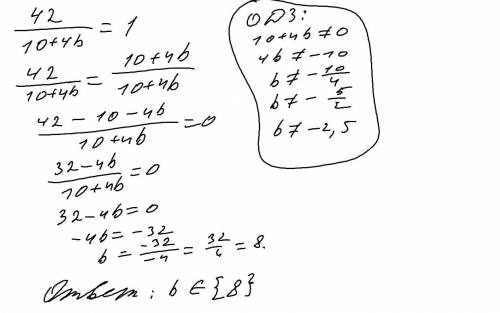 42/(10+4b) = 1
42/(10+4b) = (10+4b)/(10+4b)
(42 - 10 - 4b)/(10+4b) = 0
(32-4b)/(10+4b) = 0
32-4b=0
-4b = -32
b = (-32)/(-4) = 32/4 = 8.
Ответ: b ∈ {8}
ОДЗ:
10+4b ≠ 0
4b ≠ -10
b ≠ - 10/4
b ≠ - 5/2
b ≠ -2,5